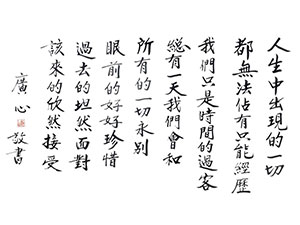 人生中出現的一切
都無法佔有只能經歷
我們只是時間的過客
總有一天我們會和
所有的一切永別
眼前的好好珍惜
過去的坦然面對
該來的欣然接受
廣心敬書